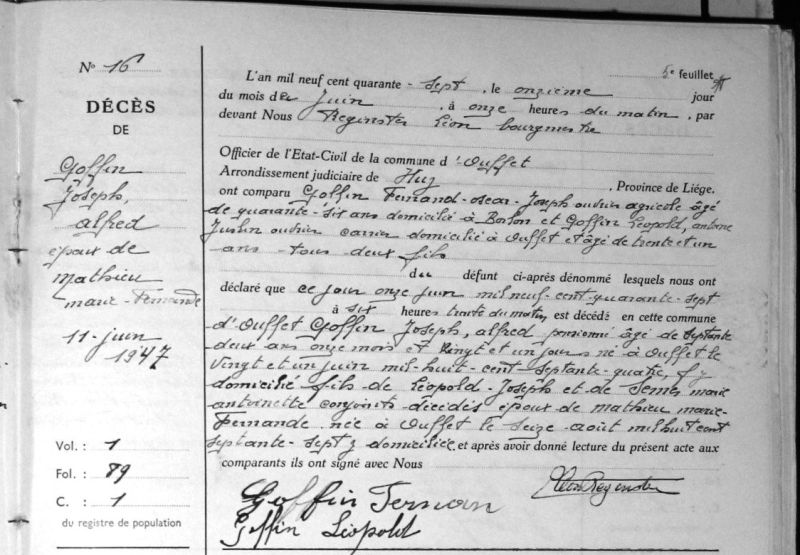 N° 16
DÉCÈS
DE
Goffin
Joseph,
alfred
époux de
Mathieu
marie-Fernande
11-juin
1947
Vol. : 1
Fol. : 89
C. : 1
du registre de population
5e feuillet
L'an mil neuf cent quarante-sept, le onzième jour
du mois de Juin, à onze heures du matin, par
devant Nous Reginster Léon bourgmestre
Officier de l'Etat-Civil de la commune d'Ouffet
Arrondissement judiciaire de Huy, Province de Liége.
ont comparu Goffin Fernand-oscar-Joseph ouvrier agricole âgé
de quarante-six ans domicilié à Borlon et Goffin Léopold, antoine
Justin ouvrier carrier domicilié à Ouffet et âgé de trente et un
ans - tous deux fils
du défunt ci-après dénommé lesquels nous ont
déclaré que ce jour onze juin mil neuf-cent-quarante-sept
à six heures trente du matin, est décédé en cette commune
d'Ouffet Goffin Joseph, alfred pensionné âgé de septante
deux ans onze mois et vingt et un jours né à Ouffet le
vingt et un juin mil-huit-cent-septante-quatre, y
domicilié fils de Léopold-Joseph et de marie
antoinette conjoints décédés époux de mathieu marie-
Fernande née à Ouffet le seize août mil huit cent
septante-sept y domiciliée, et après avoir donné lecture du présent acte aux
comparants ils ont signé avec Nous
Léon Reginster
Goffin Fernan
Goffin Léopold